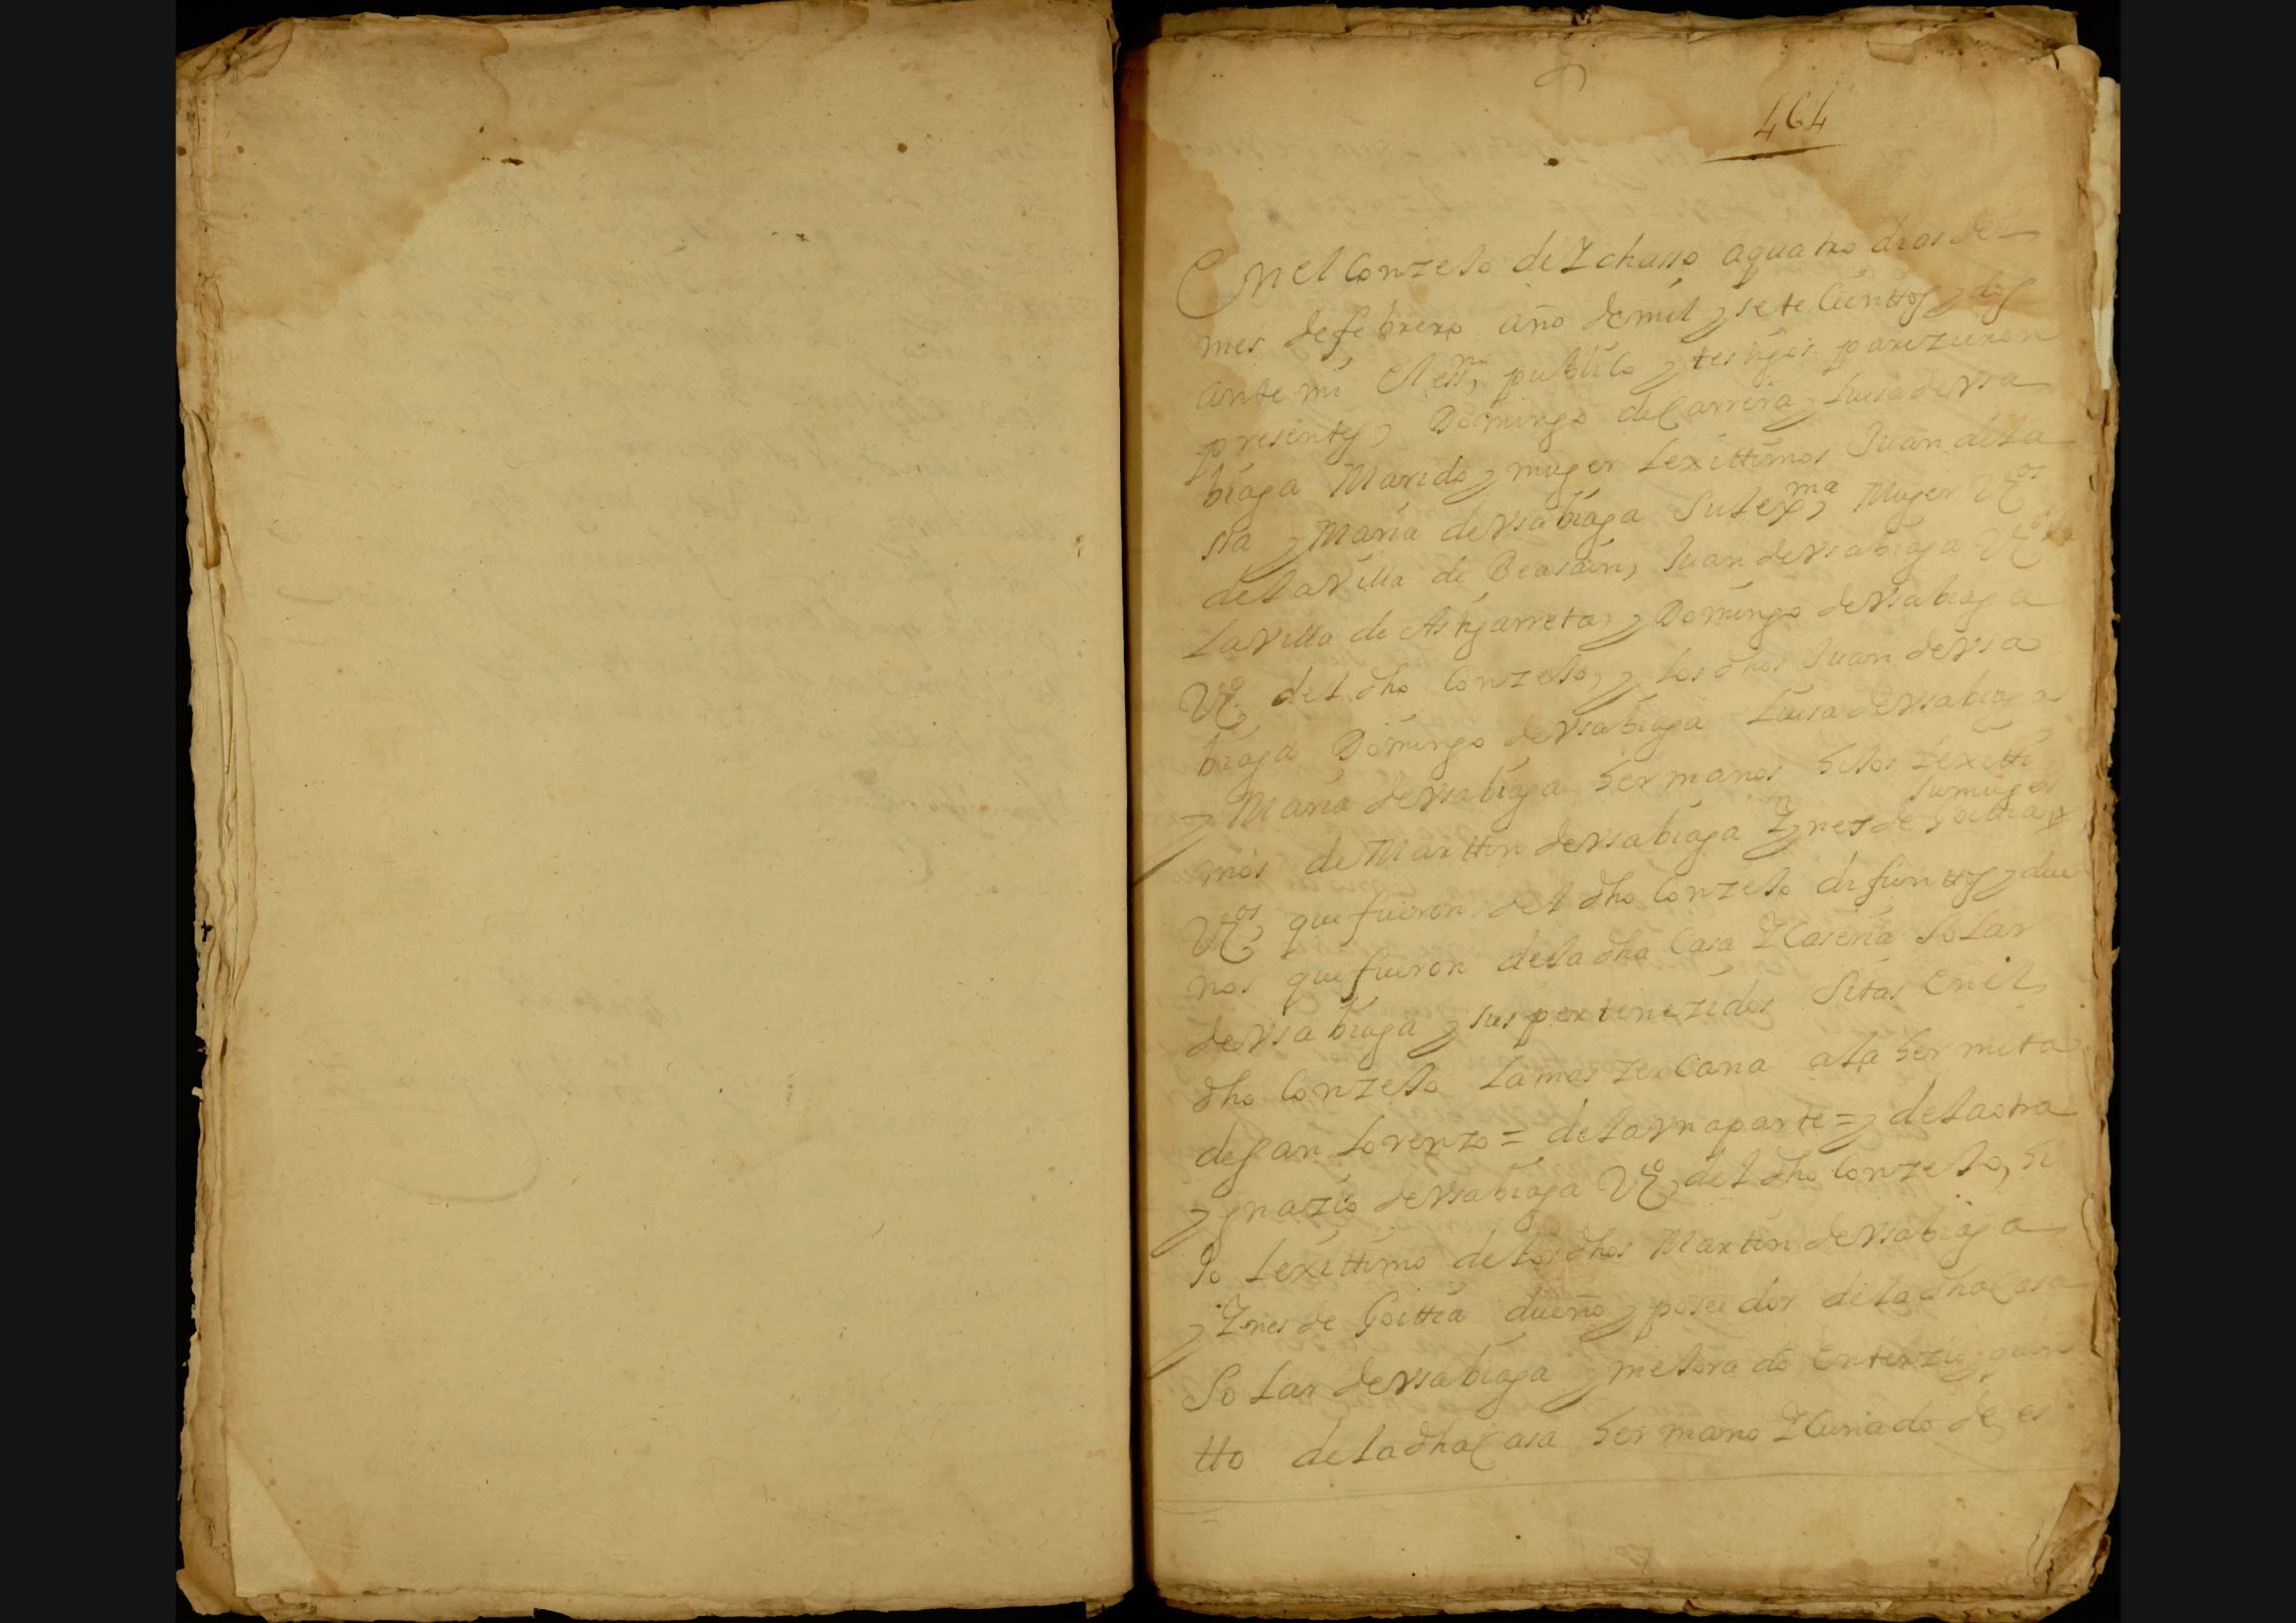 464
En el Conzejo de Ichasso a quatro dias del
mes de febrero año de mil y sete Cienttos y dos
ante mi el ess.no publico y testigos parezieron
presentes, Domingo de Carrera y Luisa de Vsa
biaga Marido y muger Lexittimos Juan de La
sa y Maria de Vsabiaga su lex.ma Muger Vº.os
de la Villa de Beasain, Juan de Vsabiaga Vº. de
la Villa de Astigarreta, y Domingo de Vsabiaga
Vº. del dho Conzejo, y los dhos Juan de Vsa
biaga Domingo de Vsabiaga Luisa de Vsabiaga
y Maria de Vsabiaga hermanos hijos Lexitti
mos de Marttin de Vsabiaga Y Ynes de Goittia su muger
Vº.os que fueron del dho Conzejo difunttos y due
nos que fueron de la dha Casa Y Caseria solar
de Vsabiaga y sus pertenezidos Sitas en el
dho Conzejo la mas zercana a la hermita
de san Lorenzo = de la vna parte = y de la otra
ygnazio de Vsabiaga Vº. del dho Conzejo, hi
jo Lexittimo de los dhos Martin de Vsabiaga
y Ynes de Goittia dueño y poseedor de la dha Casa
Solar de Vsabiaga y mejorado en terzio y quin
tto de la dha Casa hermano Y Cuñado de es